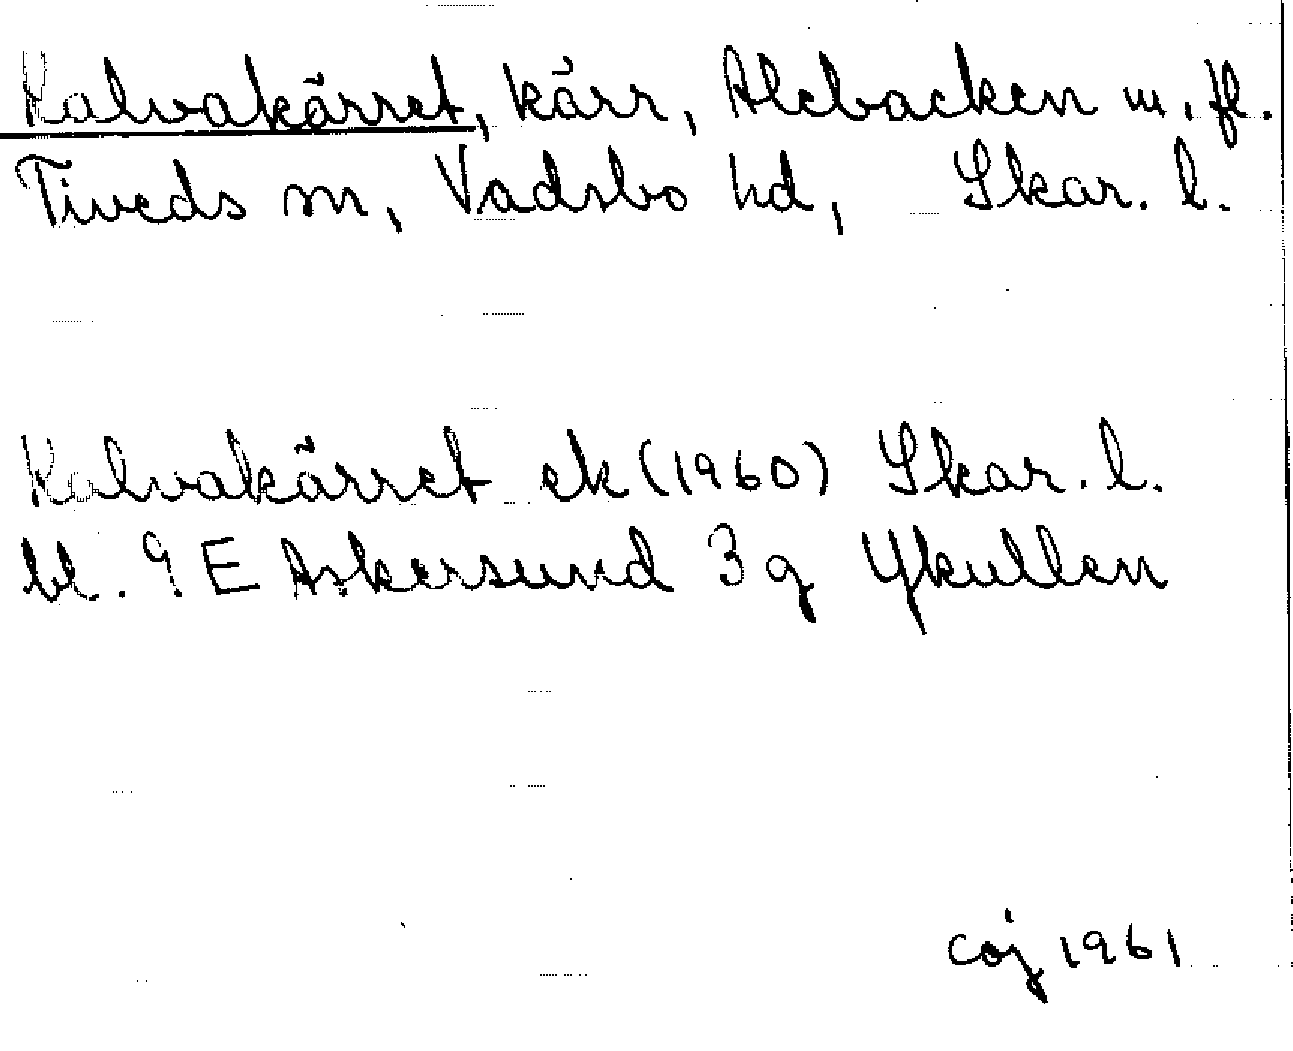 Kalvakärret, kärr, Alebacken m. fl.
Tiveds sn, Vadsbo hd, Skar. l.
Kalvakärret ek (1960) Skar. l.
bl. 9 E Askersund 3 g Ykullen
coj 1961